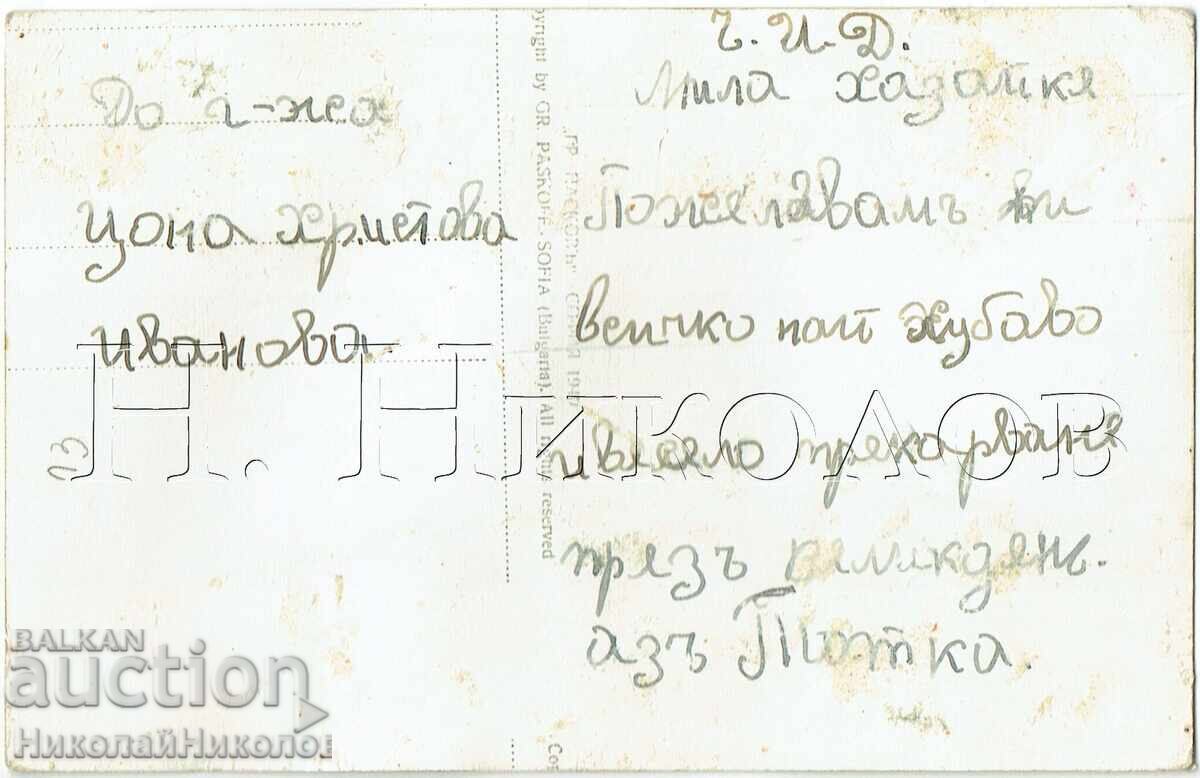 До г-жа
Цона Христова
Иванова
13
Ч. И. Д.
Мила хазайке
Пожелавамъ ви
всичко най хубаво
и весело прекарване
презъ великдень.
азъ Тотка.
ГР. ПАСКОВЪ СОФИЯ
Copyright by GR. PASKOFF - SOFIA (Bulgaria). All rights reserved
Н. НИКОЛОВ
BALKAN
auction
НиколайНиколов